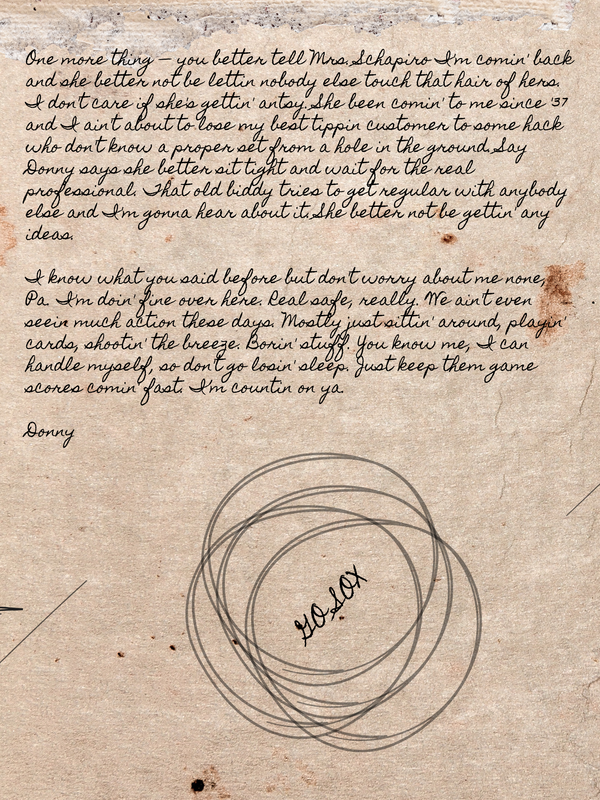 One more thing – you better tell Mrs. Schapiro I'm comin' back
and she better not be lettin nobody else touch that hair of hers.
I don't care if she's gettin' antsy. She been comin' to me since '37
and I ain't about to lose my best tippin customer to some hack
who don't know a proper set from a hole in the ground. Say
Donny says she better sit tight and wait for the real
professional. That old biddy tries to get regular with anybody
else and I'm gonna hear about it. She better not be gettin' any
ideas.

I know what you said before but don't worry about me none,
Pa. I'm doin' fine over here. Real safe, really. We ain't even
seein much action these days. Mostly just sittin' around, playin'
cards, shootin' the breeze. Borin' stuff. You know me, I can
handle myself, so don't go losin' sleep. Just keep them game
scores comin' fast. I'm countin on ya.

Donny

GO SOX